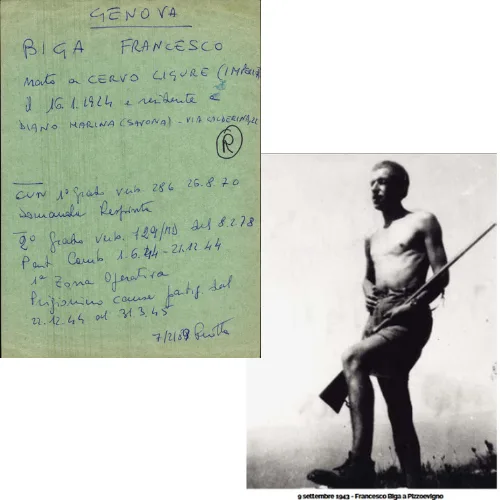 GENOVA
BIGA FRANCESCO
nato a CERVO LIGURE (IMPERIA
il 16.1.1924 e residente
DIANO MARINA (SAVONA) - VIA
R
1° grado verb. 286 26.8.70
Domanda Respinta
2° grado verb. 129/MD del 8.2.78
Part. Comb. 1.6.44 - 21.12.44
1ª Zona Operativa
Prigioniero come partig. dal
22.12.44 al 31.3.45
9 settembre 1943 - Francesco Biga a Pizzoevigno